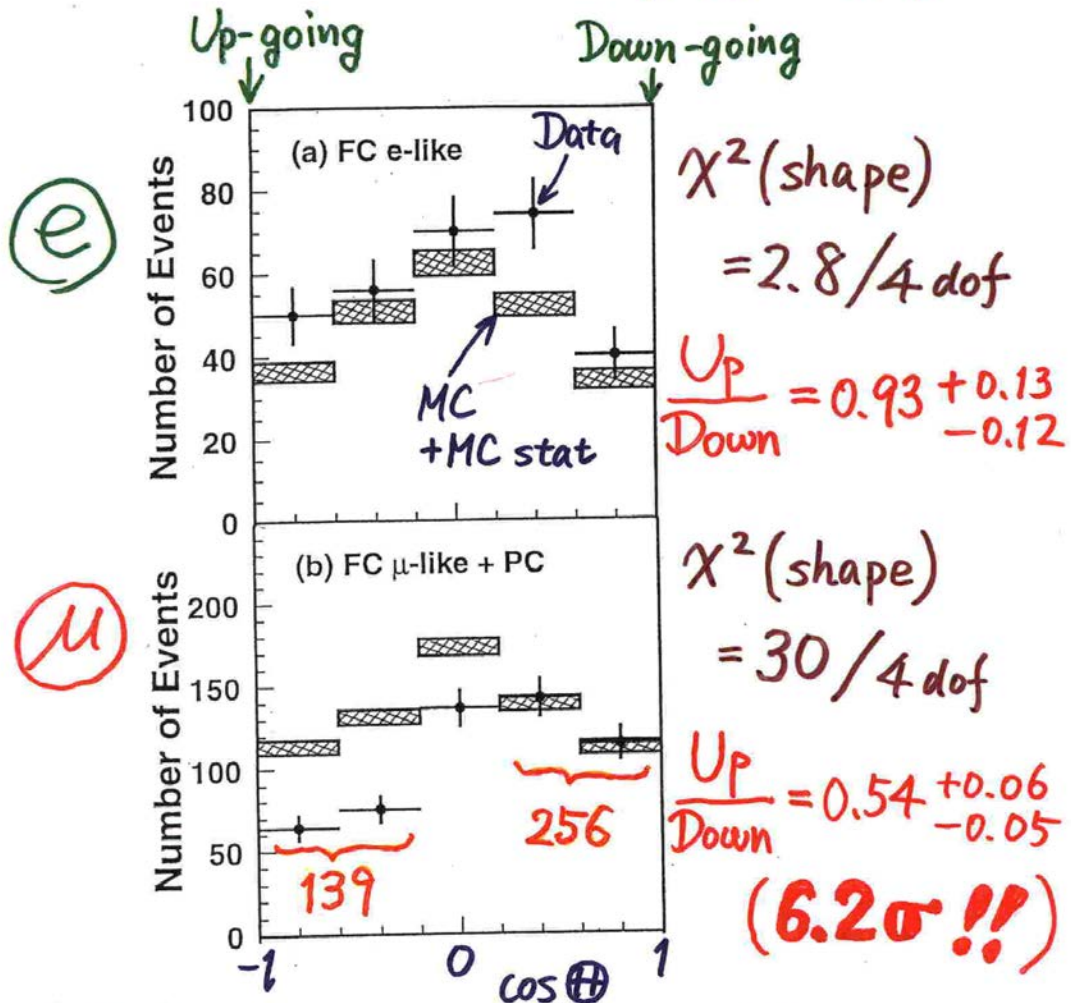 Up-going
Down-going
100
80
60
40
20
0
Number of Events
(a) FC e-like
Data
MC
+MC stat
e
χ² (shape)
= 2.8 / 4 dof
Up
Down
= 0.93 +0.13
-0.12
μ
200
150
100
50
0
Number of Events
(b) FC μ-like + PC
139
256
-1
0
1
cos Θ
χ² (shape)
= 30 / 4 dof
Up
Down
= 0.54 +0.06
-0.05
(6.2σ !!)